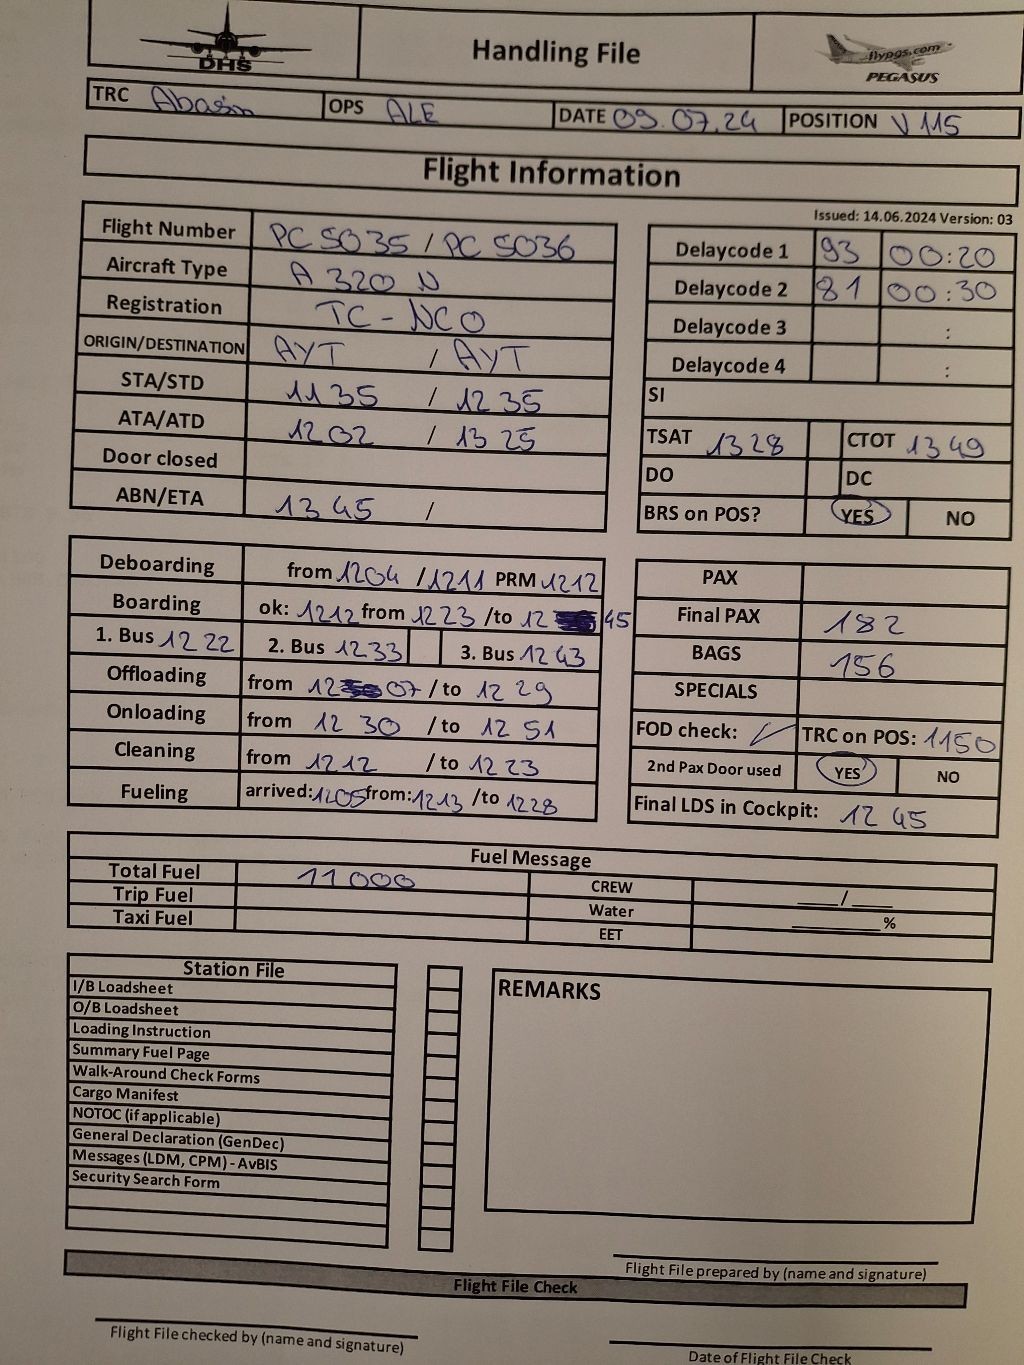 DHS Handling File flypgs.com PEGASUS
TRC Abasin OPS ALE DATE 09.07.24 POSITION V 115
Flight Information
Issued: 14.06.2024 Version: 03
Flight Number PC 5035 / PC 5036
Aircraft Type A 320 N
Registration TC - NCO
ORIGIN/DESTINATION AYT / AYT
STA/STD 1135 / 1235
ATA/ATD 1202 / 1325
Door closed
ABN/ETA 1345 /
Delaycode 1 93 00:20
Delaycode 2 81 00:30
Delaycode 3 :
Delaycode 4 :
SI
TSAT 1328 CTOT 1349
DO DC
BRS on POS? YES NO
Deboarding from 1204 / 1211 PRM 1212
Boarding ok: 1212 from 1223 /to 12 45
1. Bus 1222 2. Bus 1233 3. Bus 1243
Offloading from 12 07 / to 12 29
Onloading from 12 30 / to 12 51
Cleaning from 1212 / to 1223
Fueling arrived: 1205 from: 1213 /to 1228
PAX
Final PAX 182
BAGS 156
SPECIALS
FOD check: ✓ TRC on POS: 1150
2nd Pax Door used YES NO
Final LDS in Cockpit: 12 45
Fuel Message
Total Fuel 11 000 CREW ____/____
Trip Fuel Water ________%
Taxi Fuel EET
Station File
I/B Loadsheet
O/B Loadsheet
Loading Instruction
Summary Fuel Page
Walk-Around Check Forms
Cargo Manifest
NOTOC (if applicable)
General Declaration (GenDec)
Messages (LDM, CPM) - AvBIS
Security Search Form
REMARKS
Flight File prepared by (name and signature)
Flight File Check
Flight File checked by (name and signature)
Date of Flight File Check